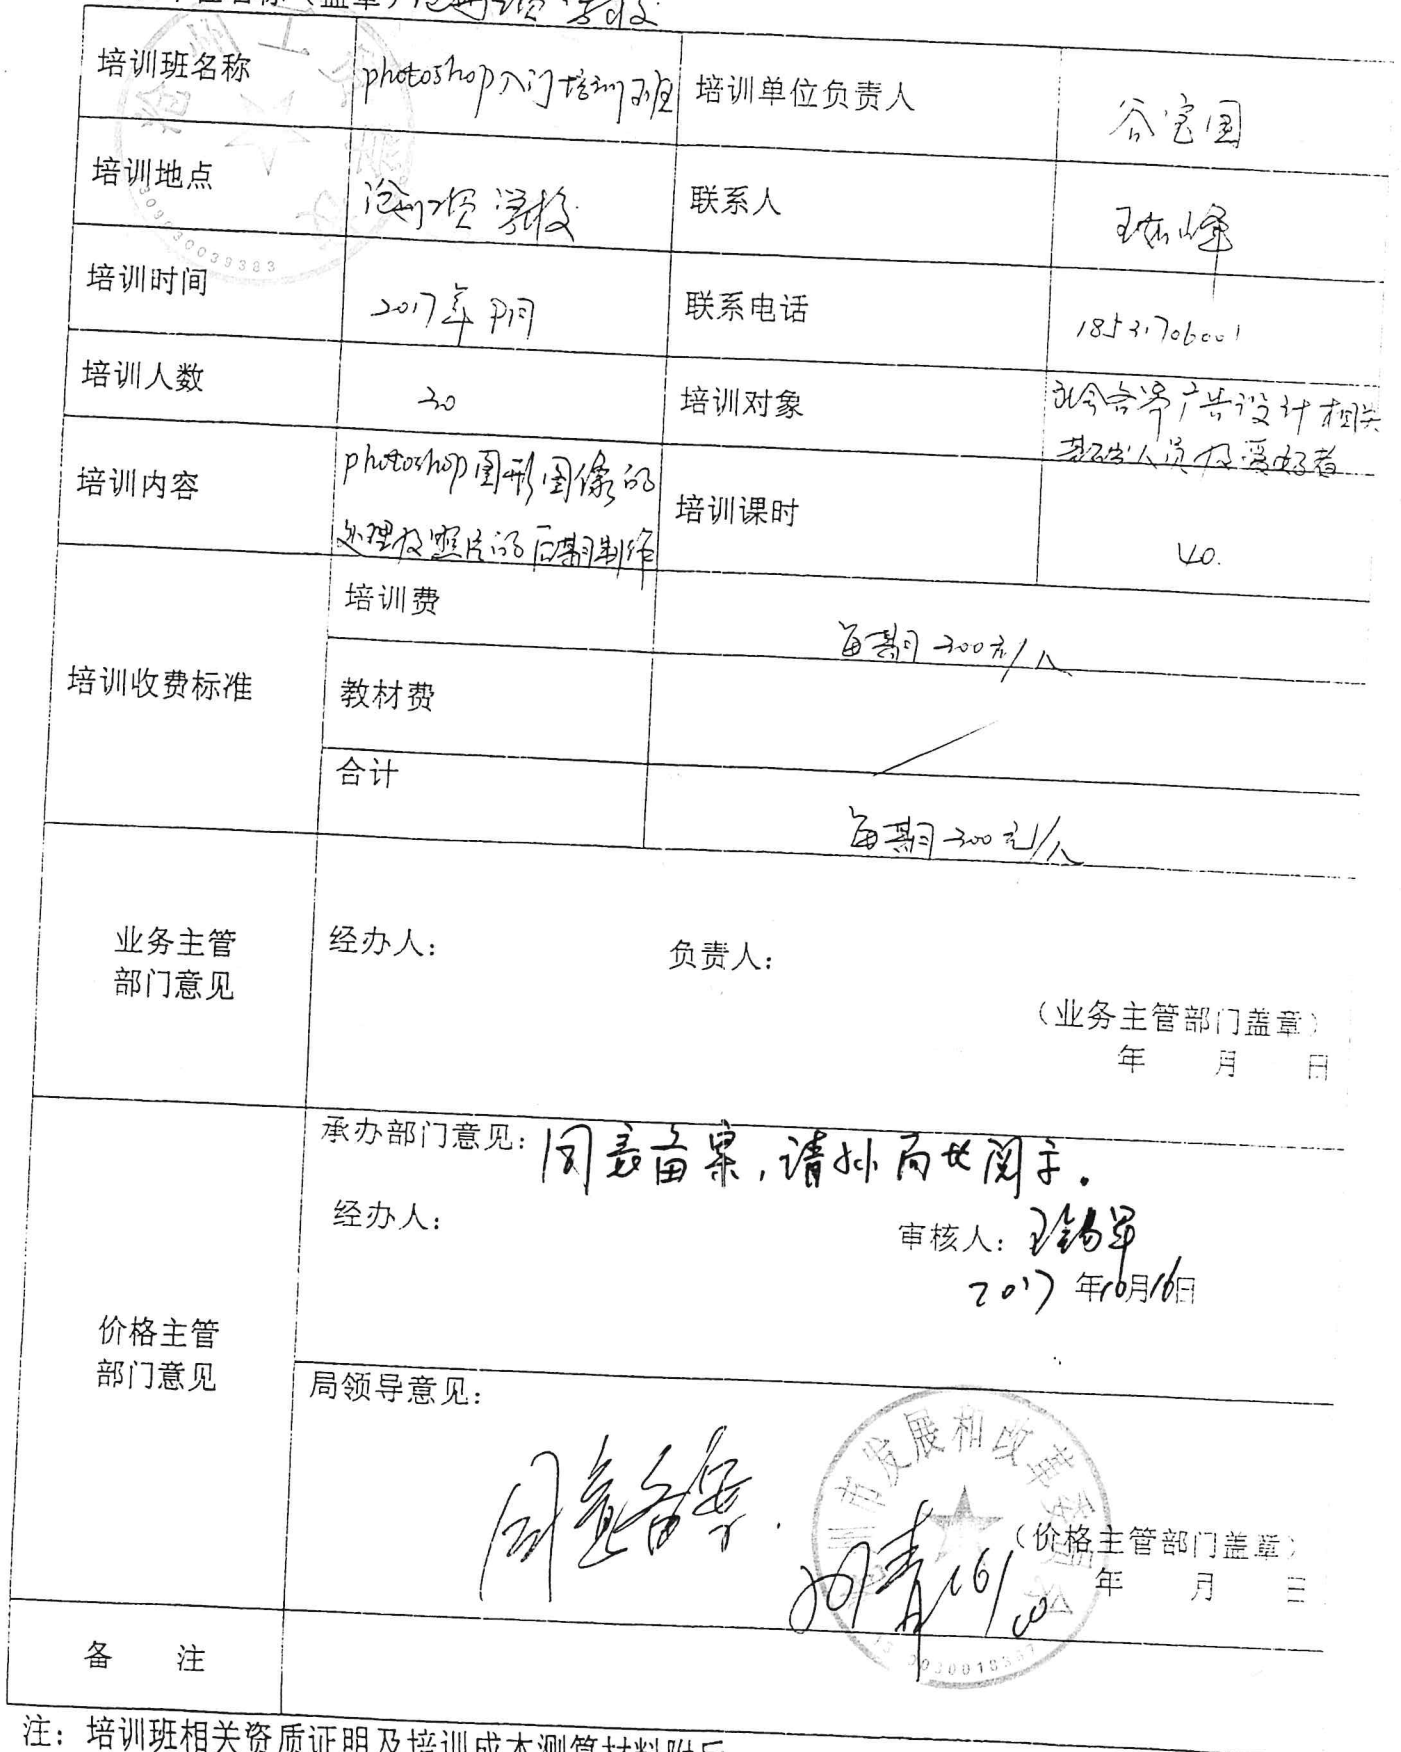 培训班名称 photoshop入门培训班 培训单位负责人 谷宝国
培训地点 沧州工贸学校 联系人
培训时间 2017年 月 联系电话 18531706001
培训人数 30 培训对象 社会各界广告设计相关
基础人员及爱好者
培训内容 photoshop图形图像的
处理及照片的后期制作
培训课时 40.
培训收费标准
培训费 每期300元/人
教材费
合计 每期300元/人
业务主管
部门意见
经办人: 负责人:
(业务主管部门盖章)
年 月 日
价格主管
部门意见
承办部门意见: 同意备案,请孙局长阅示.
经办人: 审核人: 王锡军
2017年10月16日
局领导意见:
同意备案.
市发展和改革委
(价格主管部门盖章)
年 月 日
16/10
备 注
注: 培训班相关资质证明及培训成本测算材料附后